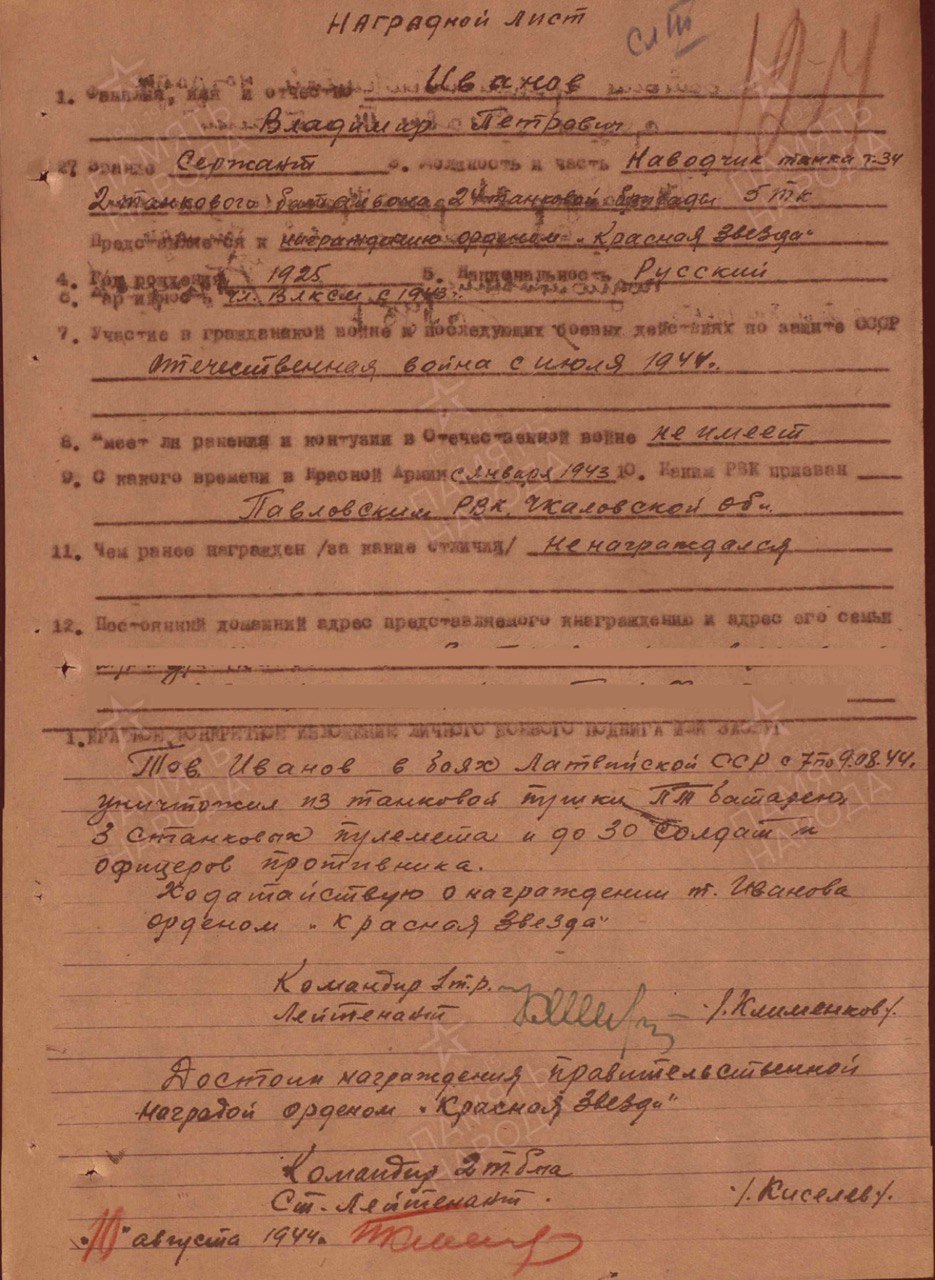 Наградной лист
сл III
1. Фамилия, имя и отчество Иванов
Владимир Петрович
2. Звание Сержант 3. Должность и часть Наводчик танка т-34
2 танкового батальона 24 танковой бригады 5 тк
Представляется к награждению орденом „Красная Звезда"
4. Год рождения 1925 5. Национальность Русский
6. Партийность чл. ВЛКСМ с 1943 г.
7. Участие в гражданской войне и последующих боевых действиях по защите СССР
Отечественная война с июля 1944г.
8. Имеет ли ранения и контузии в Отечественной войне не имеет
9. С какого времени в Красной Армии с января 1943 10. Каким РВК призван
Павловским РВК, Чкаловской Обл.
11. Чем ранее награжден /за какие отличия/ не награждался
12. Постоянный домашний адрес представляемого к награждению и адрес его семьи
1. КРАТКОЕ КОНКРЕТНОЕ ИЗЛОЖЕНИЕ ЛИЧНОГО БОЕВОГО ПОДВИГА ИЛИ ЗАСЛУГ
Тов. Иванов в боях Латвийской ССР с 7 по 9.08.44г.
уничтожил из танковой пушки ПТ батарею,
3 станковых пулемета и до 30 солдат и
офицеров противника.
Ходатайствую о награждении т. Иванова
орденом „Красная Звезда"
Командир 1 т.р.
Лейтенант /.Клименков/.
Достоин награждения правительственной
наградой орденом „Красная Звезда"
Командир 2 т.б-на
Ст. Лейтенант. /.Киселев/.
„10" августа 1944г.
ПАМЯТЬ НАРОДА